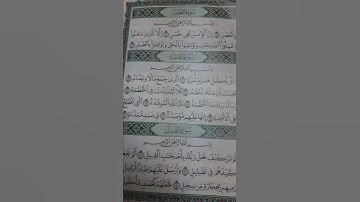 سورة العصر
بسم الله الرحمن الرحيم
والعصر إن الإنسن لفى خسر إلا الذين ءامنوا
وعملوا الصلحت وتواصوا بالحق وتواصوا بالصبر
سورة الهمزة
بسم الله الرحمن الرحيم
لكل همزة لمزة الذى جمع مالا وعدده
أخلده كلا لينبذن فى الحطمة
الحطمة نار الله الموقدة التى تطلع
الأفدة إنها عليهم مؤصدة فى عمد ممددة
سورة الفيل
بسم الله الرحمن الرحيم
ألم تر كيف فعل ربك بأصحب الفيل ألم يجعل
كيدهم فى تضليل وأرسل عليهم طيرا أبابيل
ترميهم بحجارة من سجيل فجعلهم كعصف مأكول